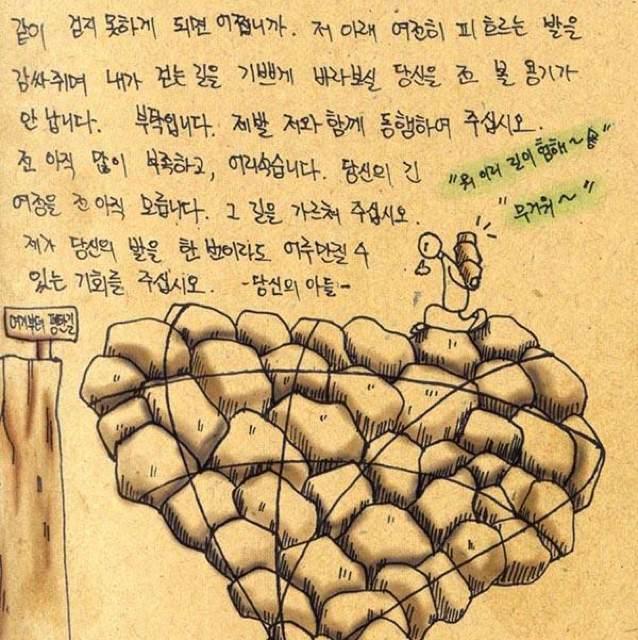 같이 걷지 못하게 되면 어쩝니까. 저 아래 여전히 피 흐르는 발을
감싸쥐며 내가 걷는 길을 기쁘게 바라보실 당신을 전 볼 용기가
안 납니다. 부탁입니다. 제발 저와 함께 동행하여 주십시오.
전 아직 많이 부족하고, 어리숙습니다. 당신의 긴
여정을 전 아직 모릅니다. 그 길을 가르쳐 주십시오.
제가 당신의 발을 한 번이라도 어루만질 수
있는 기회를 주십시오. -당신의 아들-
"뭐 이리 길이 험해~
"무거워~"
여기부터 평탄길